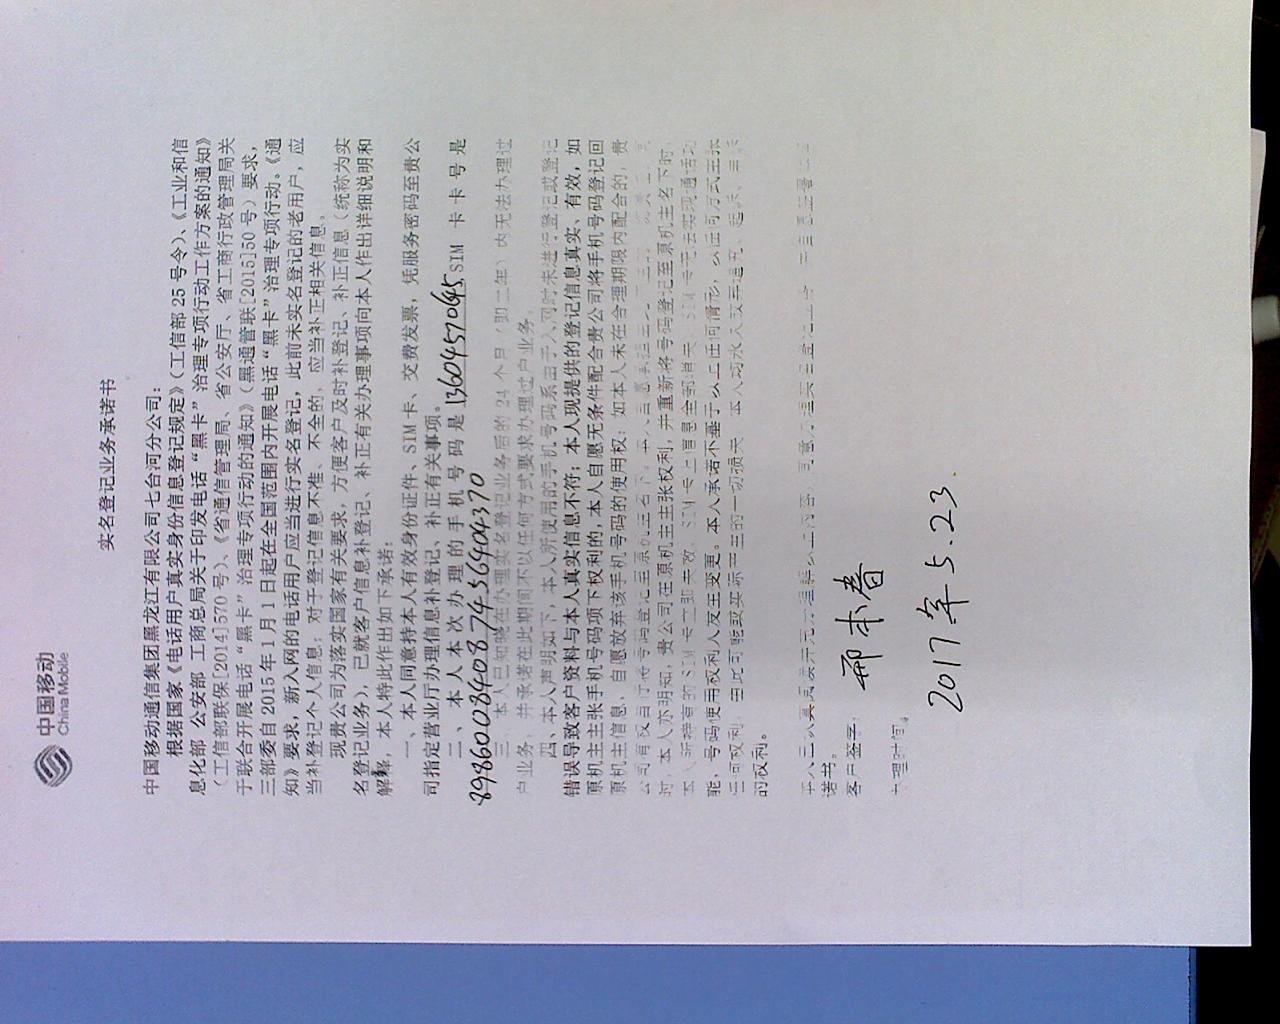 中国移动
China Mobile
实名登记业务承诺书
中国移动通信集团黑龙江有限公司七台河分公司：
根据国家《电话用户真实身份信息登记规定》（工信部 25 号令）、《工业和信
息化部 公安部 工商总局关于印发电话“黑卡”治理专项行动工作方案的通知》
（工信部联保[2014]570 号）、《省通信管理局、省公安厅、省工商行政管理局关
于联合开展电话“黑卡”治理专项行动的通知》（黑通管联[2015]50 号）要求，
三部委自 2015 年 1 月 1 日起在全国范围内开展电话“黑卡”治理专项行动。《通
知》要求，新入网的电话用户应当进行实名登记，此前未实名登记的老用户，应
当补登记个人信息；对于登记信息不准、不全的，应当补正相关信息。
现贵公司为落实国家有关要求，方便客户及时补登记、补正信息（统称为实
名登记业务），已就客户信息补登记、补正有关办理事项向本人作出详细说明和
解释，本人特此作出如下承诺：
一、本人同意持本人有效身份证件、SIM 卡、交费发票，凭服务密码至贵公
司指定营业厅办理信息补登记、补正有关事项。
二、本人本次办理的手机号码是 13604570645，SIM 卡卡号是
89860084087456404370
三、本人已知晓在办理实名登记业务后的 24 个月（即二年）内无法办理过
户业务，并承诺在此期间不以任何方式要求办理过户业务。
四、本人声明如下，本人所使用的手机号码系由于入网时未进行登记或登记
错误导致客户资料与本人真实信息不符；本人现提供的登记信息真实、有效，如
原机主主张手机号码项下权利的，本人自愿无条件配合贵公司将手机号码登记回
原机主信息，自愿放弃该手机号码的使用权；如本人未在合理期限内配合的，贵
公司有权自行将号码登记至原机主名下。
时，本人亦明知，贵公司在原机主主张权利，并重新将号码登记至原机主名下时，
本人所持有的 SIM 卡立即失效，SIM 卡上信息全部消失，SIM 卡无法实现通话功
能，号码使用权利人发生变更。本人承诺不基于以上任何情形，以任何方式主张
任何权利，由此可能或实际产生的一切损失，本人
的权利。
诺书。
客户签字：
邢本春
办理时间：
2017年5.23.